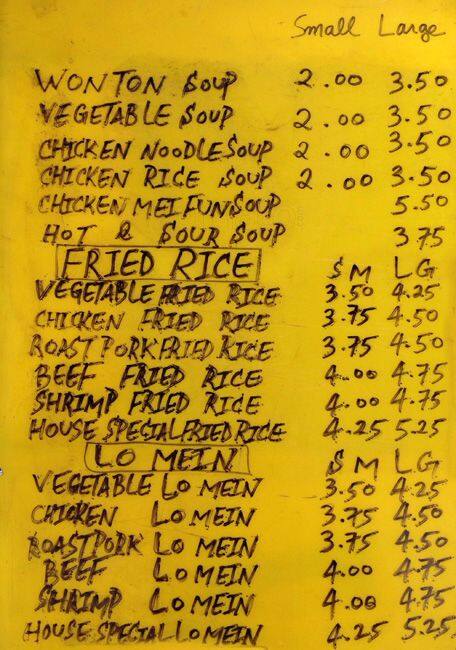 Small Large
WONTON SOUP 2.00 3.50
VEGETABLE SOUP 2.00 3.50
CHICKEN NOODLE SOUP 2.00 3.50
CHICKEN RICE SOUP 2.00 3.50
CHICKEN MEI FUN SOUP 5.50
HOT & SOUR SOUP 3.75
FRIED RICE SM LG
VEGETABLE FRIED RICE 3.50 4.25
CHICKEN FRIED RICE 3.75 4.50
ROAST PORK FRIED RICE 3.75 4.50
BEEF FRIED RICE 4.00 4.75
SHRIMP FRIED RICE 4.00 4.75
HOUSE SPECIAL FRIED RICE 4.25 5.25
LO MEIN SM LG
VEGETABLE LO MEIN 3.50 4.25
CHICKEN LO MEIN 3.75 4.50
ROAST PORK LO MEIN 3.75 4.50
BEEF LO MEIN 4.00 4.75
SHRIMP LO MEIN 4.00 4.75
HOUSE SPECIAL LO MEIN 4.25 5.25